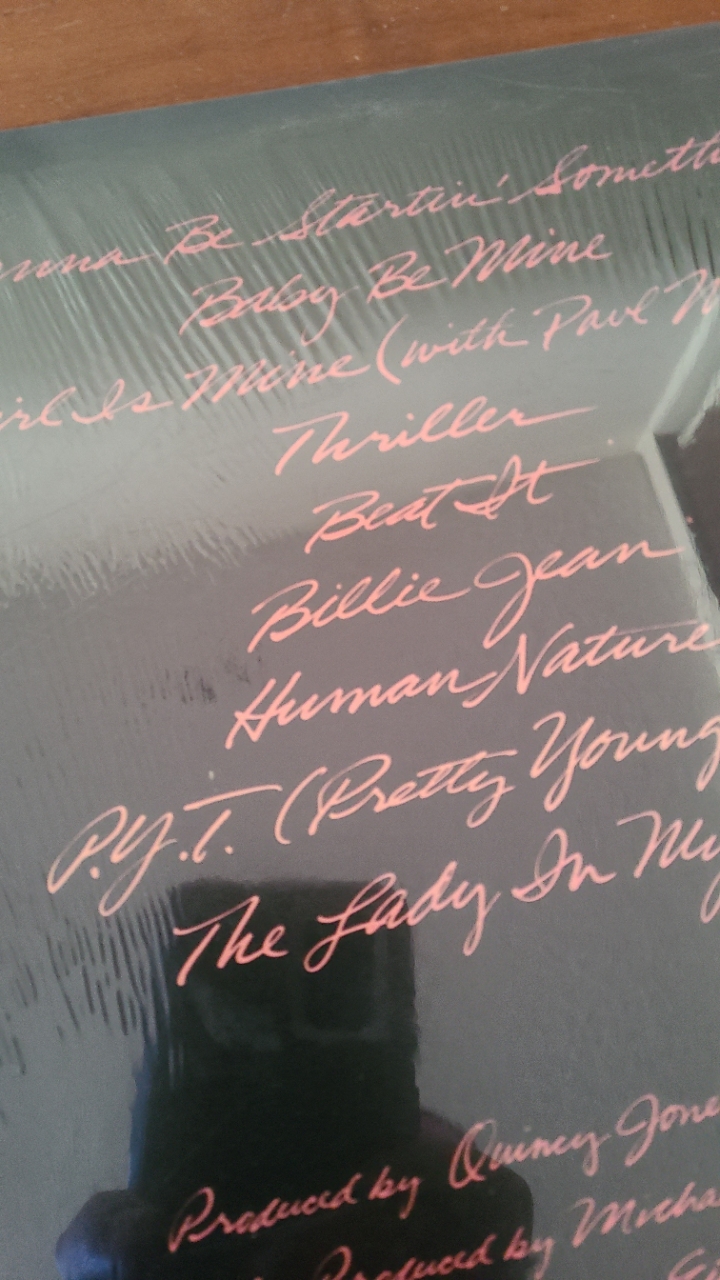 nna Be Startin' Someth
Baby Be Mine
irl Is Mine (with Paul M
Thriller
Beat It
Billie Jean
Human Nature
P.Y.T. (Pretty Young
The Lady In My
Produced by Quincy Jone
Produced by Micha